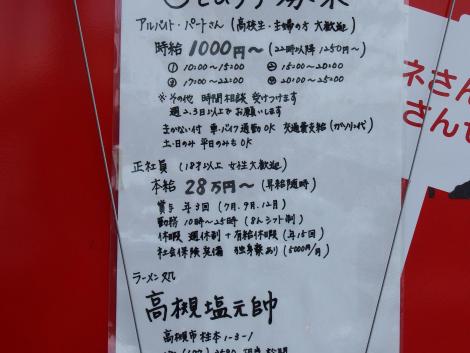 アルバイト・パートさん (高校生・主婦の方 大歓迎)
時給 1000円～ (22時以降 1250円～)
① 10:00～15:00 ② 15:00～20:00
③ 17:00～22:00 ④ 20:00～25:00
※その他 時間相談 受けつけます
週2、3日以上でお願いします
まかない付 車・バイク通勤OK 交通費支給(ガソリン代)
土・日のみ 平日のみもOK
正社員 (18才以上 女性大歓迎)
本給 28万円～ (昇給随時)
賞与 年3回 (7月、9月、12月)
勤務 10時～25時 (8hシフト制)
休暇 週休制 + 有給休暇 (年15回)
社会保険完備 独身寮あり (5000円/月)
ラーメン処
高槻塩元帥
高槻市柱本1-3-1
ネさん
さんせ